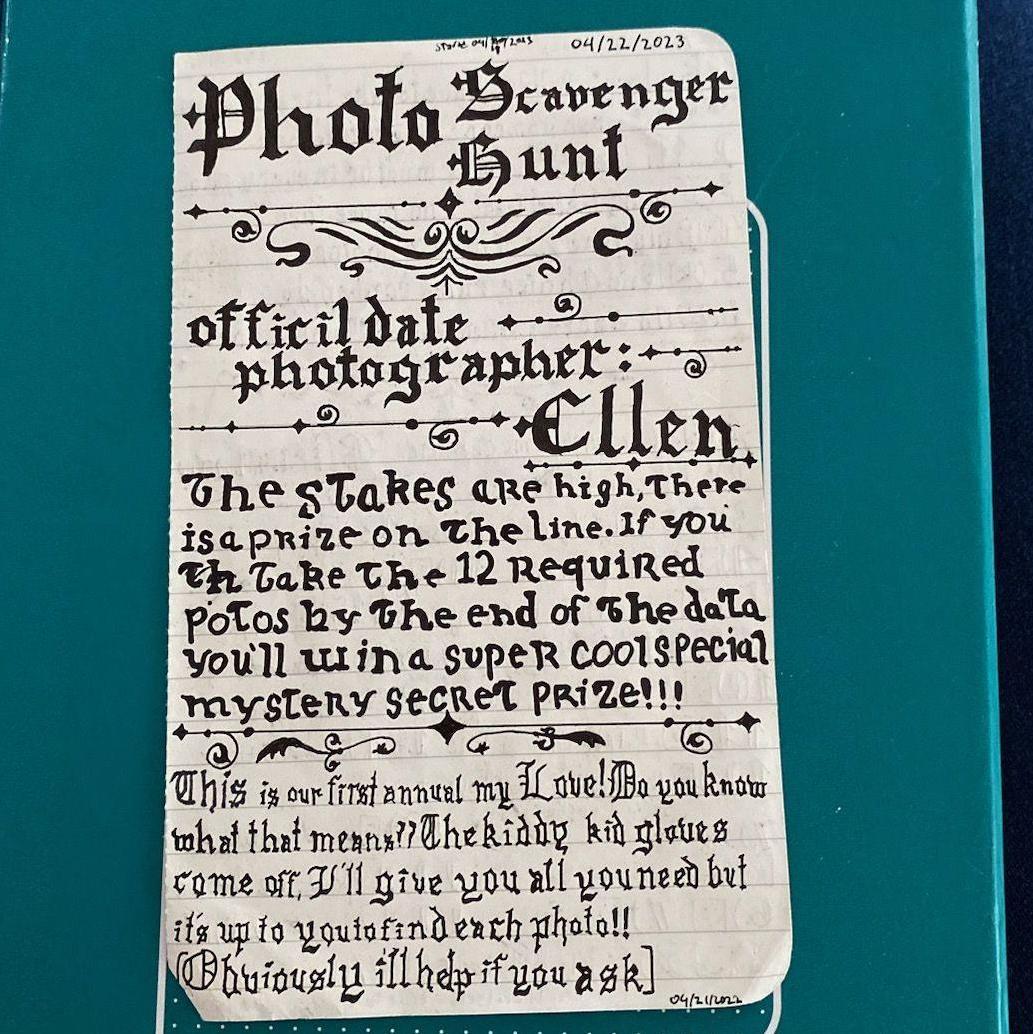 04/22/2023
Photo Scavenger
Hunt
officil date
photographer:
Ellen
The stakes are high, There
is a prize on the line. If you
th take the 12 required
potos by the end of the data
you'll win a super cool special
mystery secret prize!!!
This is our first annual my Love! Do you know
what that means?? The kiddy kid gloves
come off, I'll give you all you need but
it's up to you to find each photo!!
[Obviously ill help if you ask]
04/21/2022